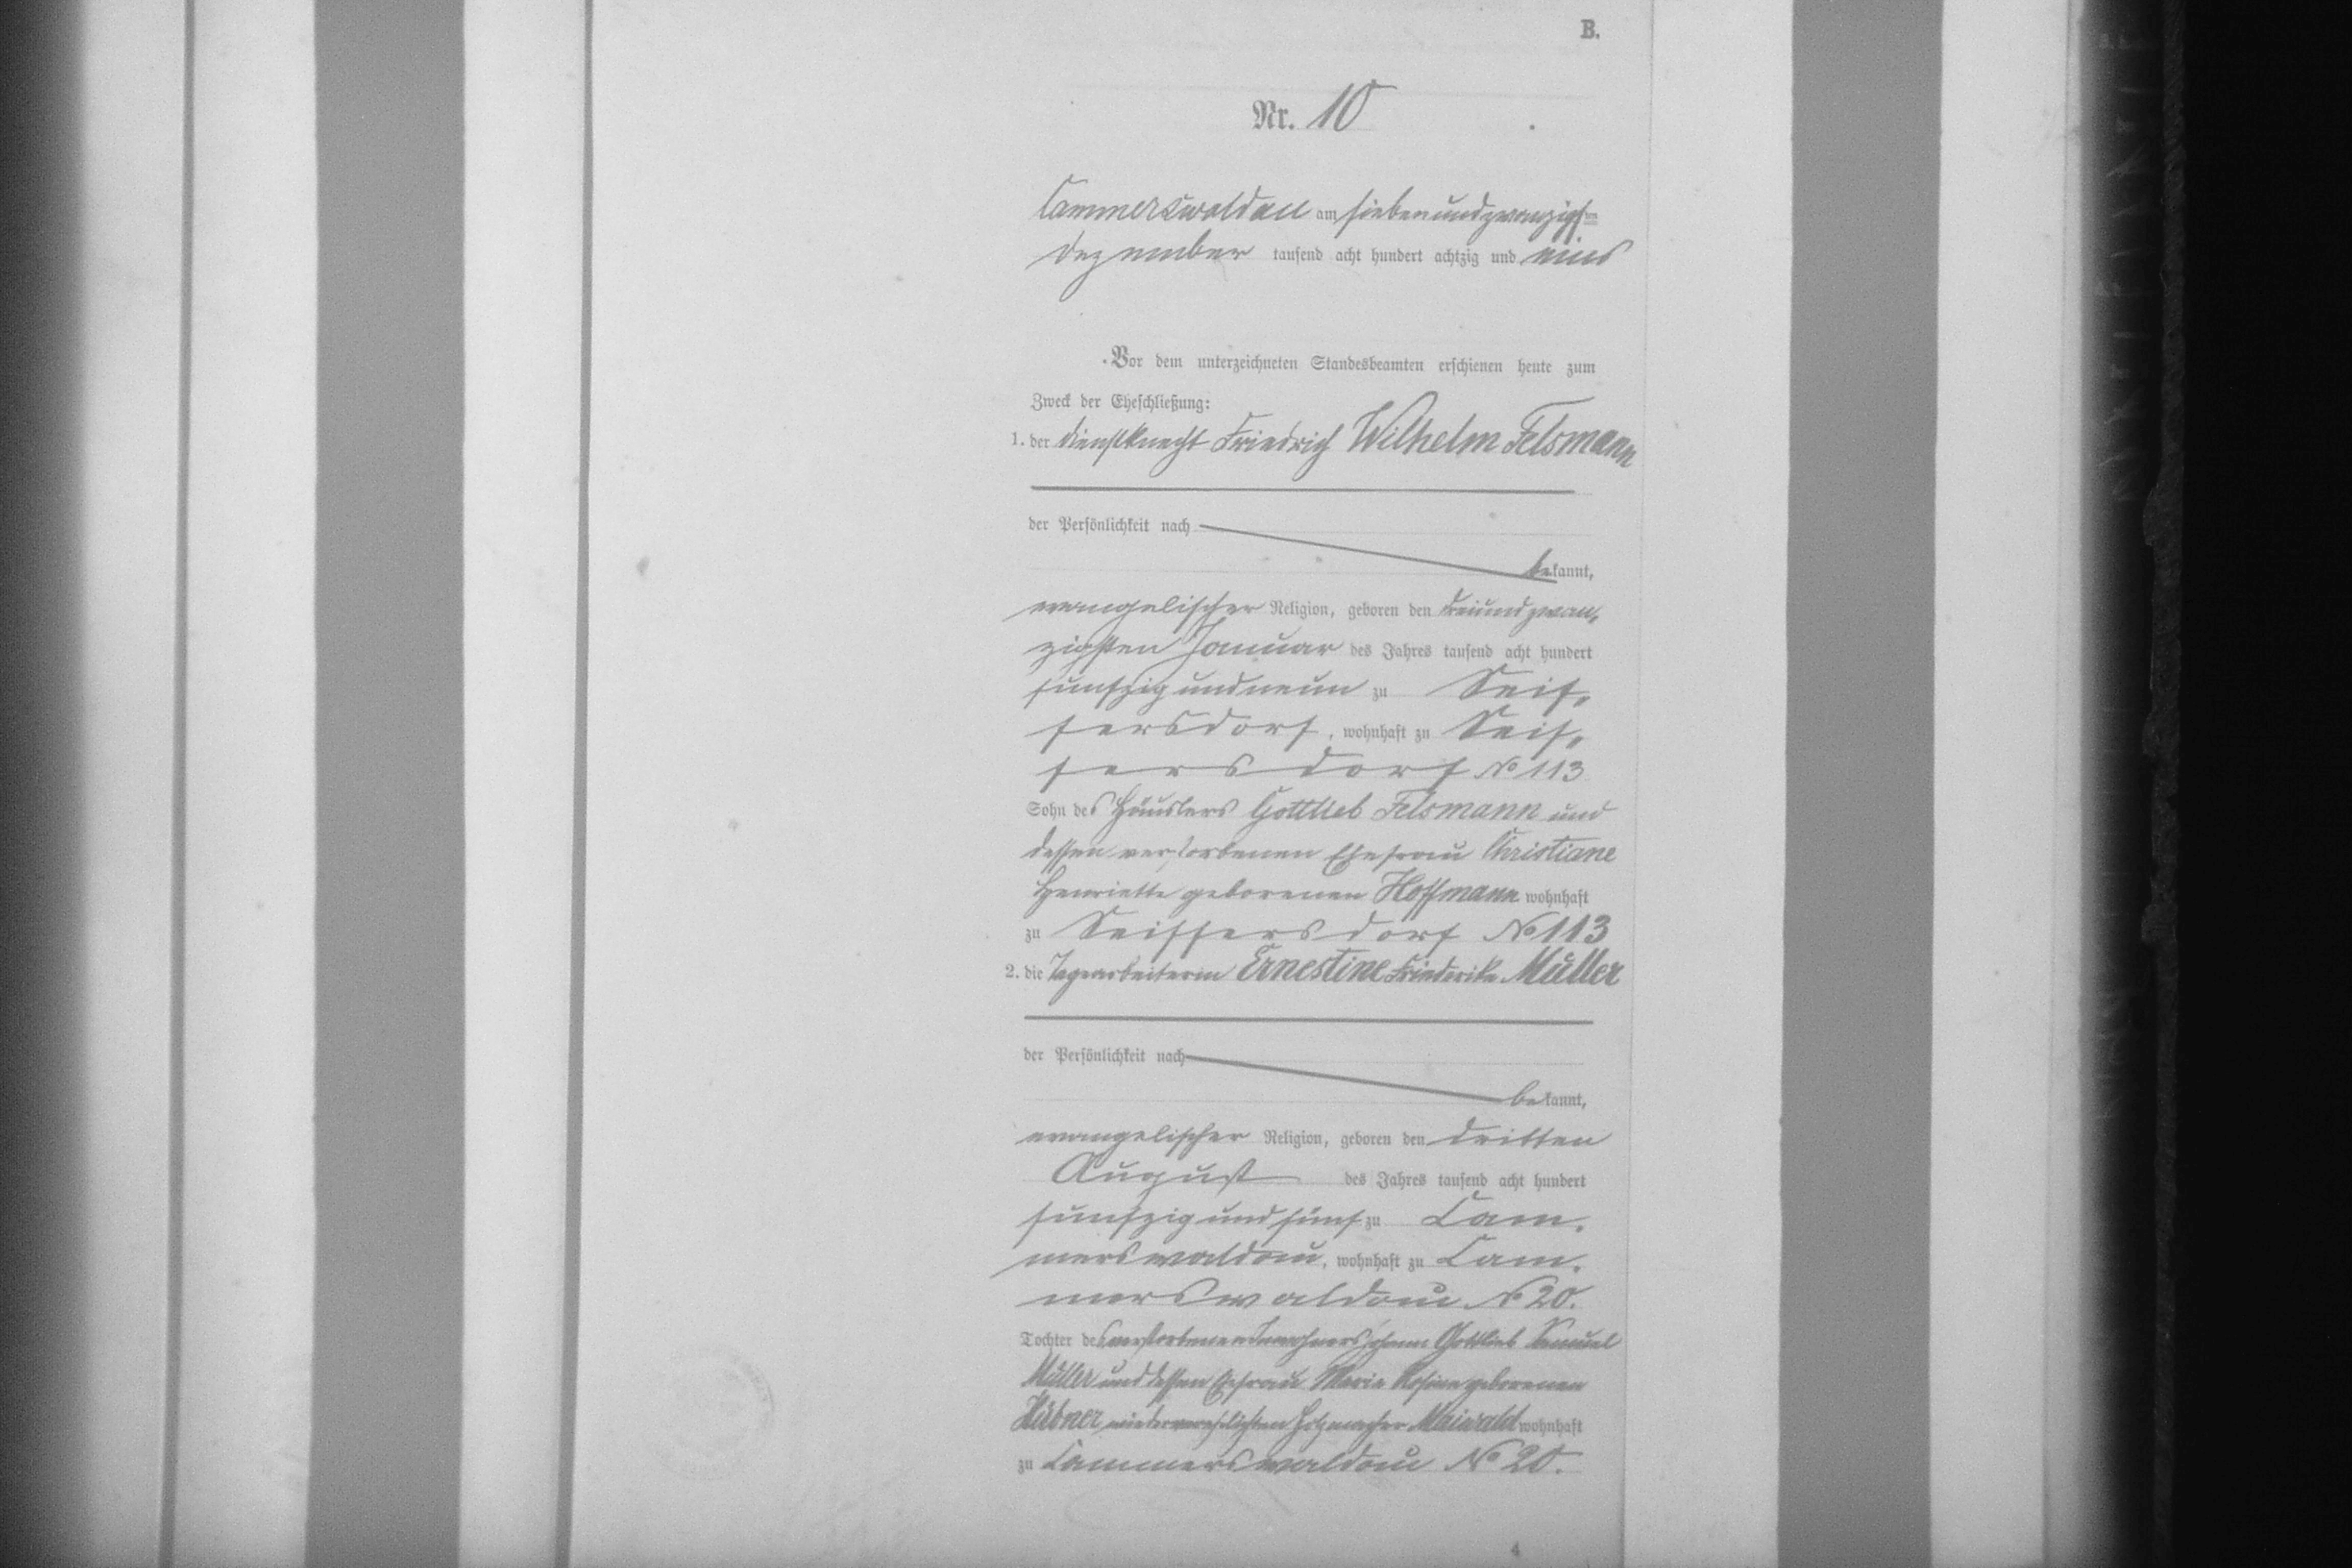 B.
Nr. 10
Cammerswaldau am siebenundzwanzigsten
Dezember tausend acht hundert achtzig und eins
Vor dem unterzeichneten Standesbeamten erschienen heute zum
Zweck der Eheschließung:
1. der Dienstknecht Friedrich Wilhelm Felsmann
der Persönlichkeit nach
bekannt,
evangelischer Religion, geboren den dreiundzwan„
zigsten Januar des Jahres tausend acht hundert
fünfzig und neun zu Seif„
fersdorf, wohnhaft zu Seif„
fersdorf No 113
Sohn des Häuslers Gottlieb Felsmann und
dessen verstorbenen Ehefrau Christiane
Henriette geborenen Hoffmann wohnhaft
zu Seiffersdorf No 113
2. die Tagearbeiterin Ernestine Friederike Müller
der Persönlichkeit nach
bekannt,
evangelischer Religion, geboren den dritten
August des Jahres tausend acht hundert
fünfzig und fünf zu Cam„
merswaldau, wohnhaft zu Cam„
merswaldau No 20.
Tochter des verstorbenen Inwohners Johann Gottlieb Samuel
Müller und dessen Ehefrau Maria Rosina geborenen
Hübner wiederverehelichten Holzmacher Maiwald wohnhaft
zu Cammerswaldau No 20.
4